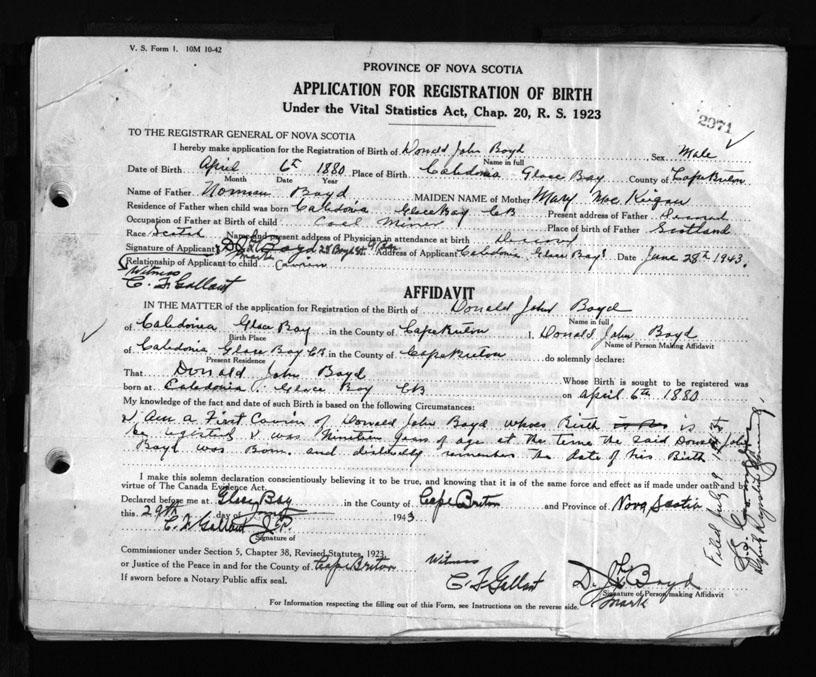 V. S. Form 1. 10M 10-42
PROVINCE OF NOVA SCOTIA
APPLICATION FOR REGISTRATION OF BIRTH
Under the Vital Statistics Act, Chap. 20, R. S. 1923
2971
TO THE REGISTRAR GENERAL OF NOVA SCOTIA
I hereby make application for the Registration of Birth of Donald John Boyd Sex Male
Name in full
Date of Birth April 6th 1880 Place of Birth Caledonia Glace Bay County of Cape Breton
Month Date Year
Name of Father Norman Boyd MAIDEN NAME of Mother Mary Mc Keigan
Residence of Father when child was born Caledonia Glace Bay CB Present address of Father Deceased
Occupation of Father at Birth of child Coal Miner Place of birth of Father Scotland
Race Scotch Name and present address of Physician in attendance at birth
Signature of Applicant D. J. Boyd 28 Boyd St. Address of Applicant Caledonia Glace Bay Date June 28th 1943.
mark
Relationship of Applicant to child Cousin
Witness
C. F. Gallant
AFFIDAVIT
IN THE MATTER of the application for Registration of the Birth of Donald John Boyd
Name in full
of Caledonia Glace Bay in the County of Cape Breton I, Donald John Boyd
Birth Place Name of Person Making Affidavit
of Caledonia Glace Bay CB in the County of Cape Breton do solemnly declare:
Present Residence
That Donald John Boyd Whose Birth is sought to be registered was
born at Caledonia Glace Bay CB on April 6th 1880
My knowledge of the fact and date of such Birth is based on the following Circumstances:
I Am a First Cousin of Donald John Boyd whose Birth is to
be registered & was Nineteen years of age at the time the said Donald John
Boyd was Born. and distinctly remember the date of his Birth
I make this solemn declaration conscientiously believing it to be true, and knowing that it is of the same force and effect as if made under oath and by
virtue of The Canada Evidence Act.
Declared before me at Glace Bay in the County of Cape Breton and Province of Nova Scotia
this 29th day of June 1943
C. F. Gallant J.P.
Signature of
Commissioner under Section 5, Chapter 38, Revised Statutes, 1923.
or Justice of the Peace in and for the County of Cape Breton
If sworn before a Notary Public affix seal.
Witness
C. F. Gallant
D. J. Boyd
Signature of Person making Affidavit
mark
For Information respecting the filling out of this Form, see Instructions on the reverse side.
Filed July 9
Deputy Registrar